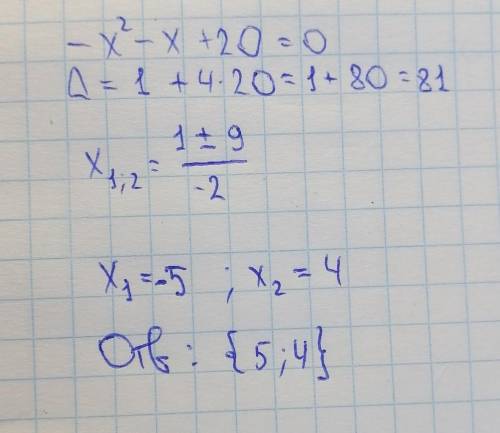 -x²-x+20=0
D=1+4·20=1+80=81
x₁;₂=(1±9)/-2
x₁=-5 ; x₂=4
Отв: {5;4}